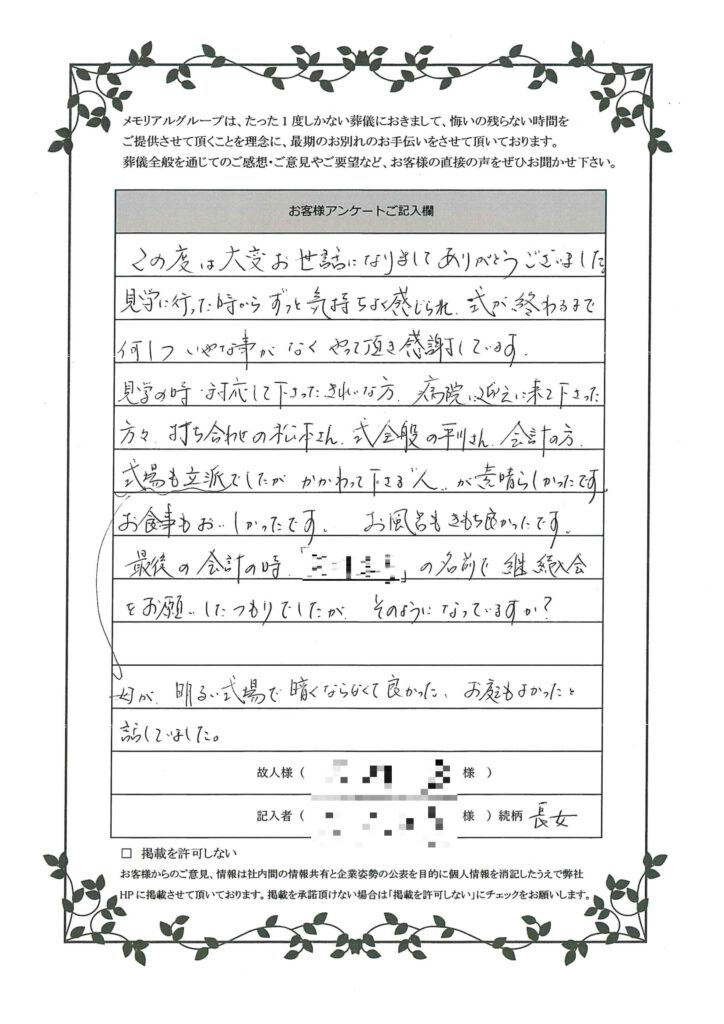 メモリアルグループは、たった１度しかない葬儀におきまして、悔いの残らない時間を
ご提供させて頂くことを理念に、最期のお別れのお手伝いをさせて頂いております。
葬儀全般を通じてのご感想・ご意見やご要望など、お客様の直接の声をぜひお聞かせ下さい。
お客様アンケートご記入欄
この度は大変お世話になりまして ありがとうございました。
見学に行った時から ずっと気持ちよく感じられ、式が終わるまで
何1つ いやな事がなく やって頂き感謝しています。
見学の時 対応して下さったきれいな方、病院に迎えに来て下さった
方々、打ち合わせの松本さん、式全般の平川さん、会計の方、
式場も立派でしたが かかわって下さる"人"が素晴らしかったです。
お食事もおいしかったです。 お風呂もきもち良かったです。
最後の会計の時、「 」の名前で 継続入会
をお願いしたつもりでしたが、そのようになっていますか?
母が、明るい式場で 暗くならなくて良かった、お庭もよかったと
話していました。
故人様（ 様 ）
記入者（ 様 ）続柄 長女
□ 掲載を許可しない
お客様からのご意見、情報は社内間の情報共有と企業姿勢の公表を目的に個人情報を消記したうえで弊社
HPに掲載させて頂いております。掲載を承諾頂けない場合は「掲載を許可しない」にチェックをお願いします。